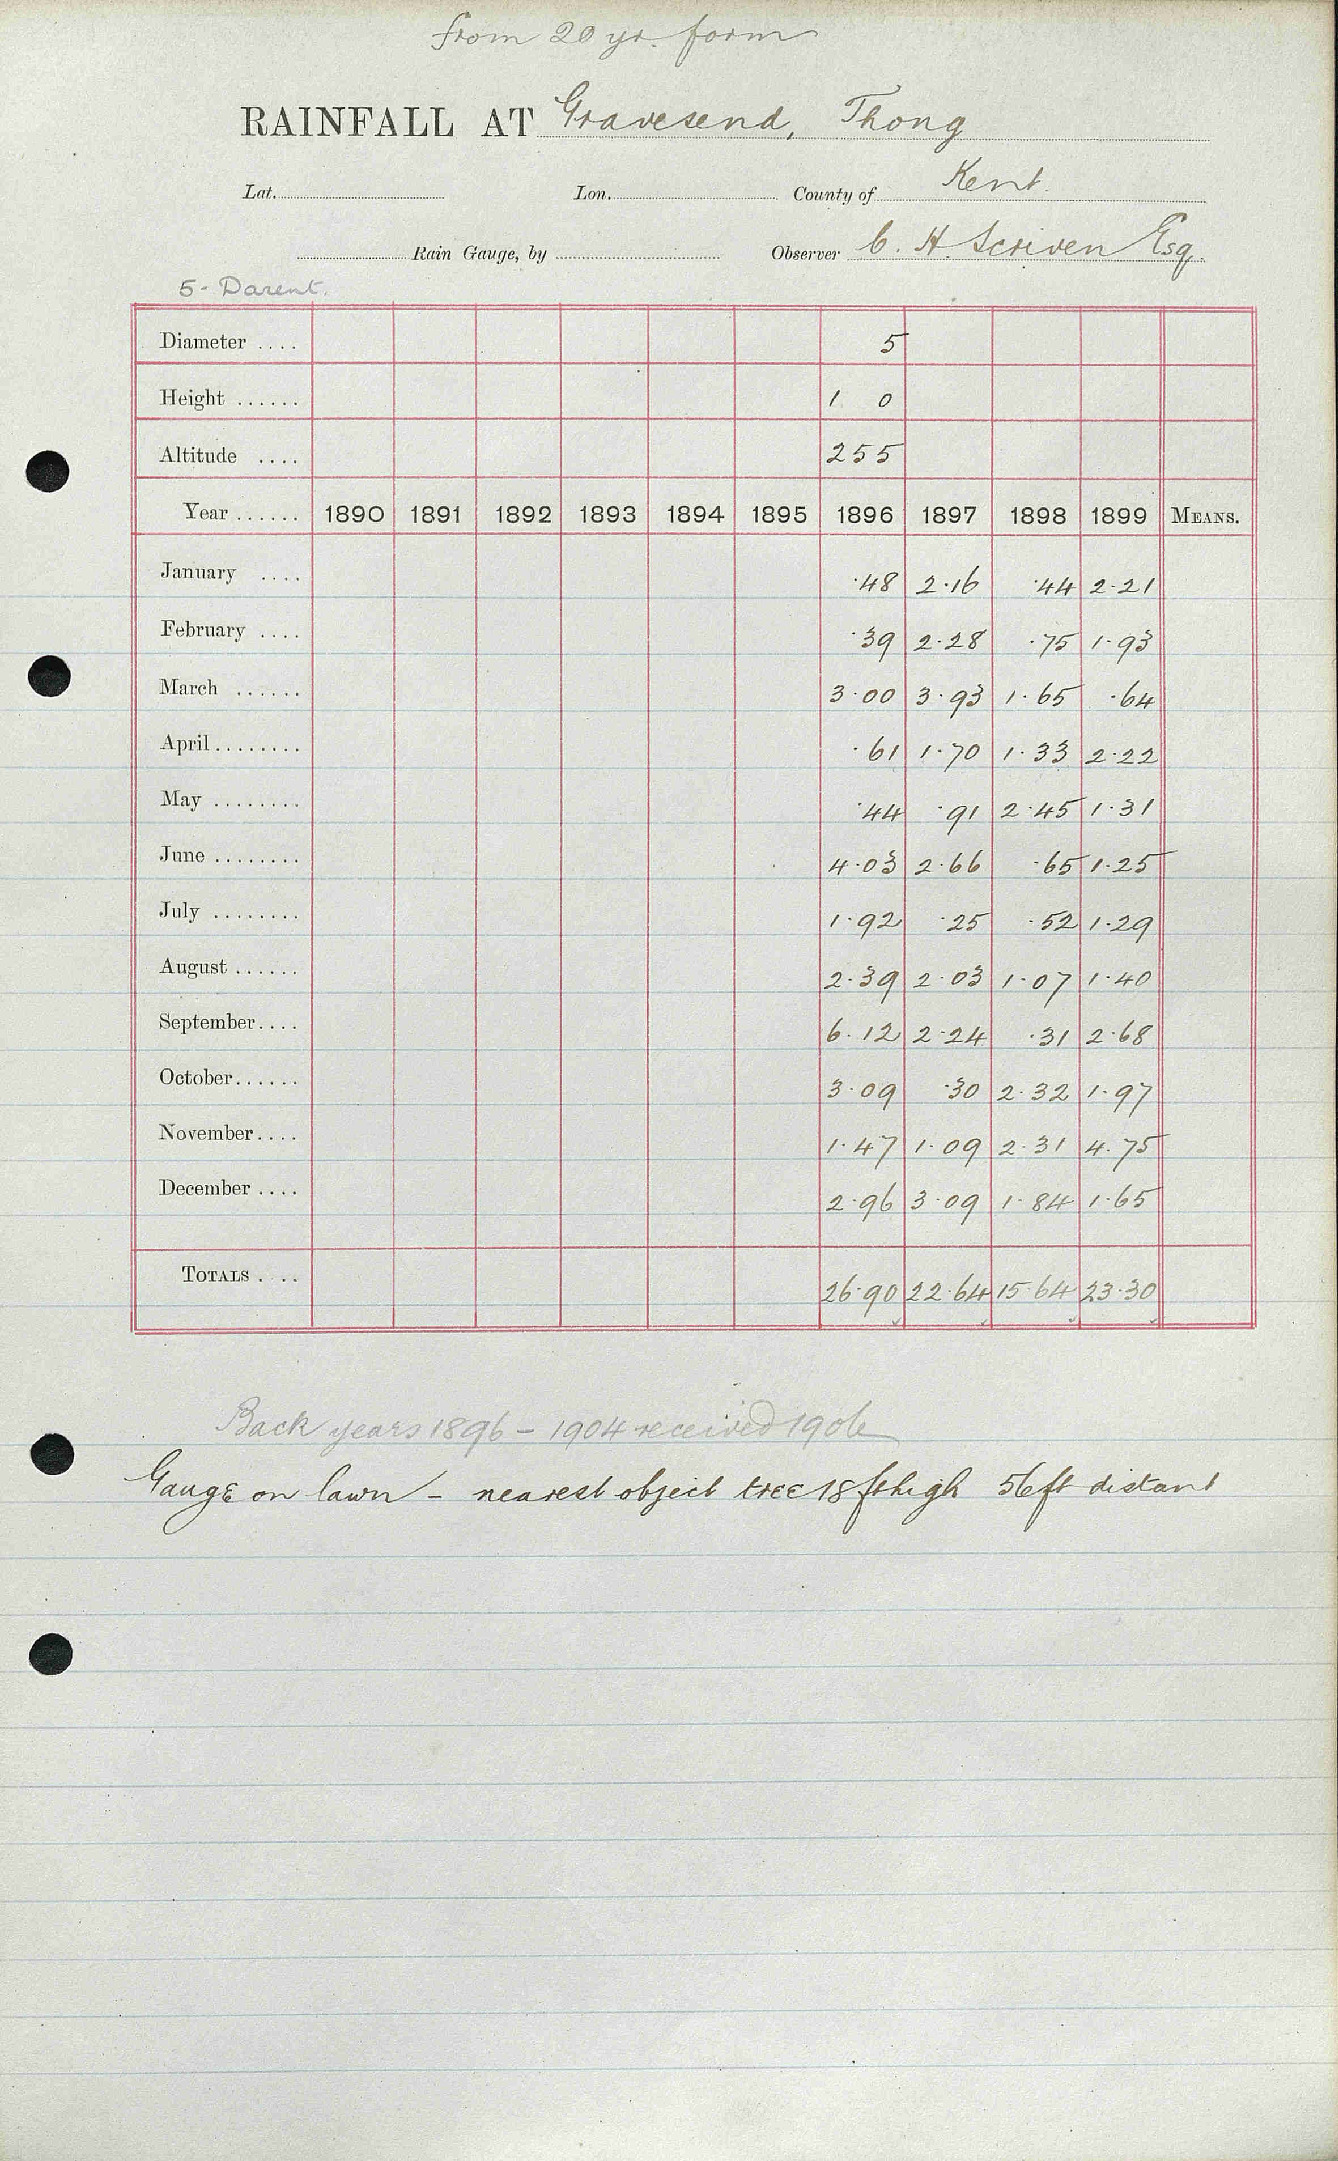 from 20 yr. form
RAINFALL AT Gravesend, Thong
Lat. Lon. County of Kent.
Rain Gauge, by Observer C. H. Scriven Esq.
5 - Darent.
Diameter .... 5
Height ...... 1 0
Altitude .... 255
Year ...... 1890 1891 1892 1893 1894 1895 1896 1897 1898 1899 MEANS.
January .... .48 2.16 .44 2.21
February .... .39 2.28 .75 1.93
March ...... 3.00 3.93 1.65 .64
April ........ .61 1.70 1.33 2.22
May ........ .44 .91 2.45 1.31
June ........ 4.03 2.66 .65 1.25
July ........ 1.92 .25 .52 1.29
August ...... 2.39 2.03 1.07 1.40
September.... 6.12 2.24 .31 2.68
October...... 3.09 .30 2.32 1.97
November.... 1.47 1.09 2.31 4.75
December .... 2.96 3.09 1.84 1.65
TOTALS .... 26.90 22.64 15.64 23.30
Back years 1896 - 1904 received 1906
Gauge on lawn - nearest object tree 18 ft high 56 ft distant